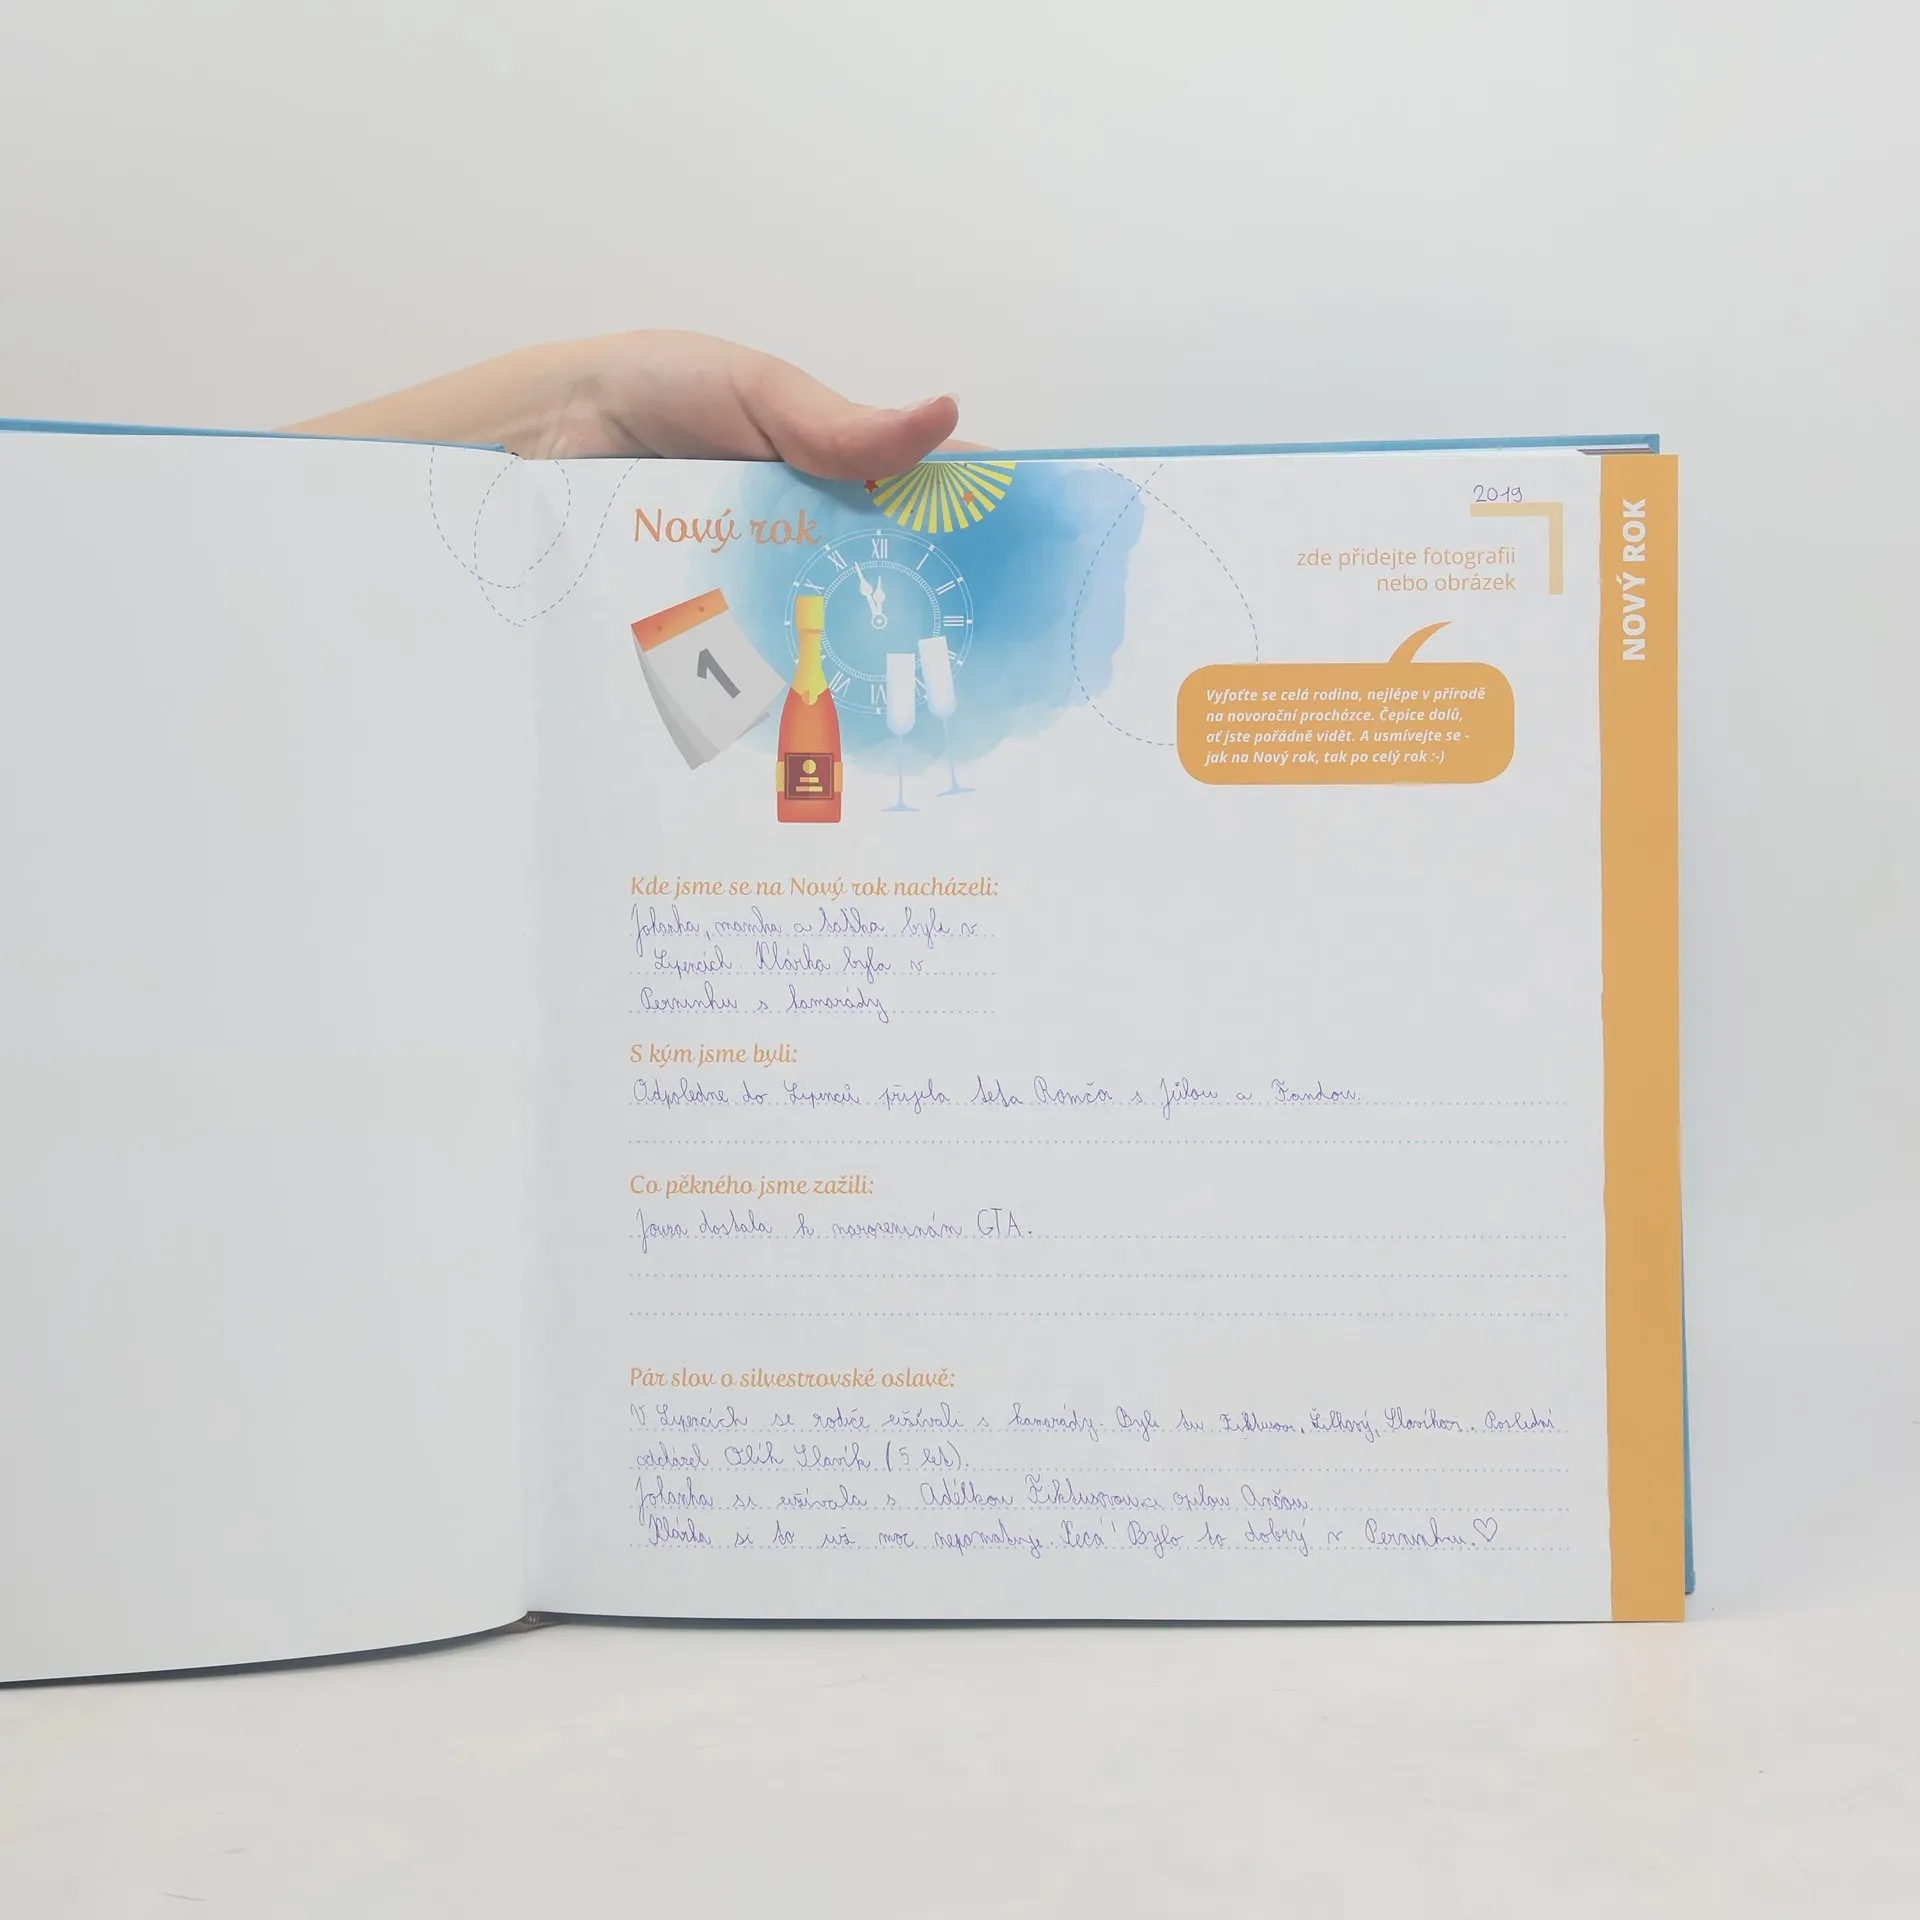 2019
Nový rok
XII
zde přidejte fotografii
nebo obrázek
NOVÝ ROK
1
Vyfoťte se celá rodina, nejlépe v přírodě
na novoroční procházce. Čepice dolů,
ať jste pořádně vidět. A usmívejte se -
jak na Nový rok, tak po celý rok :-)
Kde jsme se na Nový rok nacházeli:
Johanka, mamka a taťka byli v
Lipencích. Klárka byla v
Perninku s kamarády
S kým jsme byli:
Odpoledne do Lipenců přijela teta Romča s Júlou a Fandou.
Co pěkného jsme zažili:
dostala k narozeninám GTA.
Pár slov o silvestrovské oslavě:
V Lipencích se rodiče užívali s kamarády. Byli tu
odcházel Olík Slavík (5 let).
Johanka si užívala s Adélkou opilou Ančou
Klárka si to už moc nepamatuje. Kecá! Bylo to dobrý v Perninku. ♡